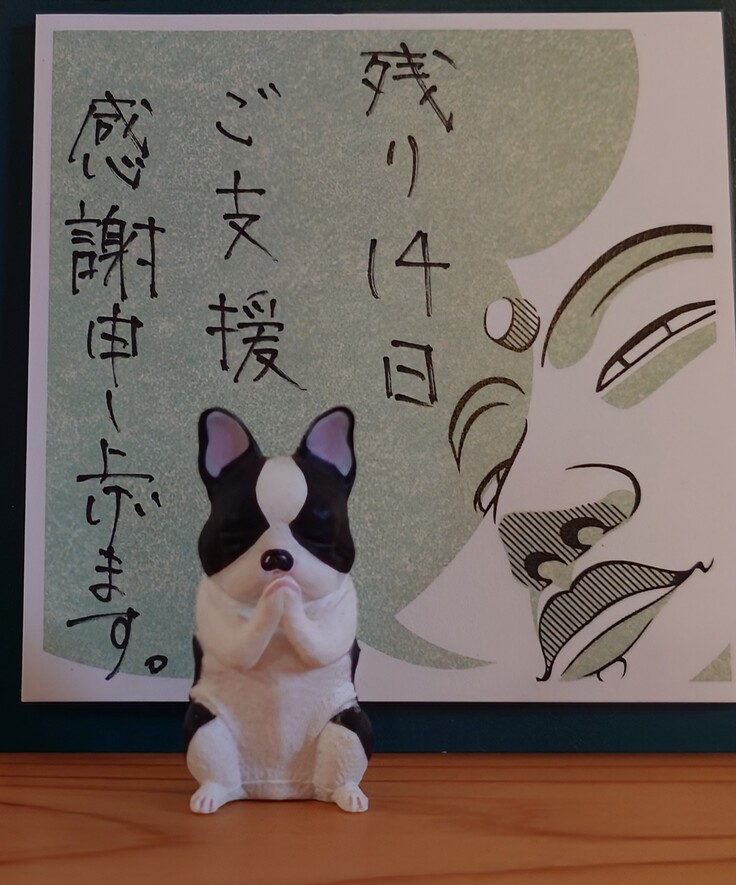 残り14日
ご支援
感謝申し上げます。